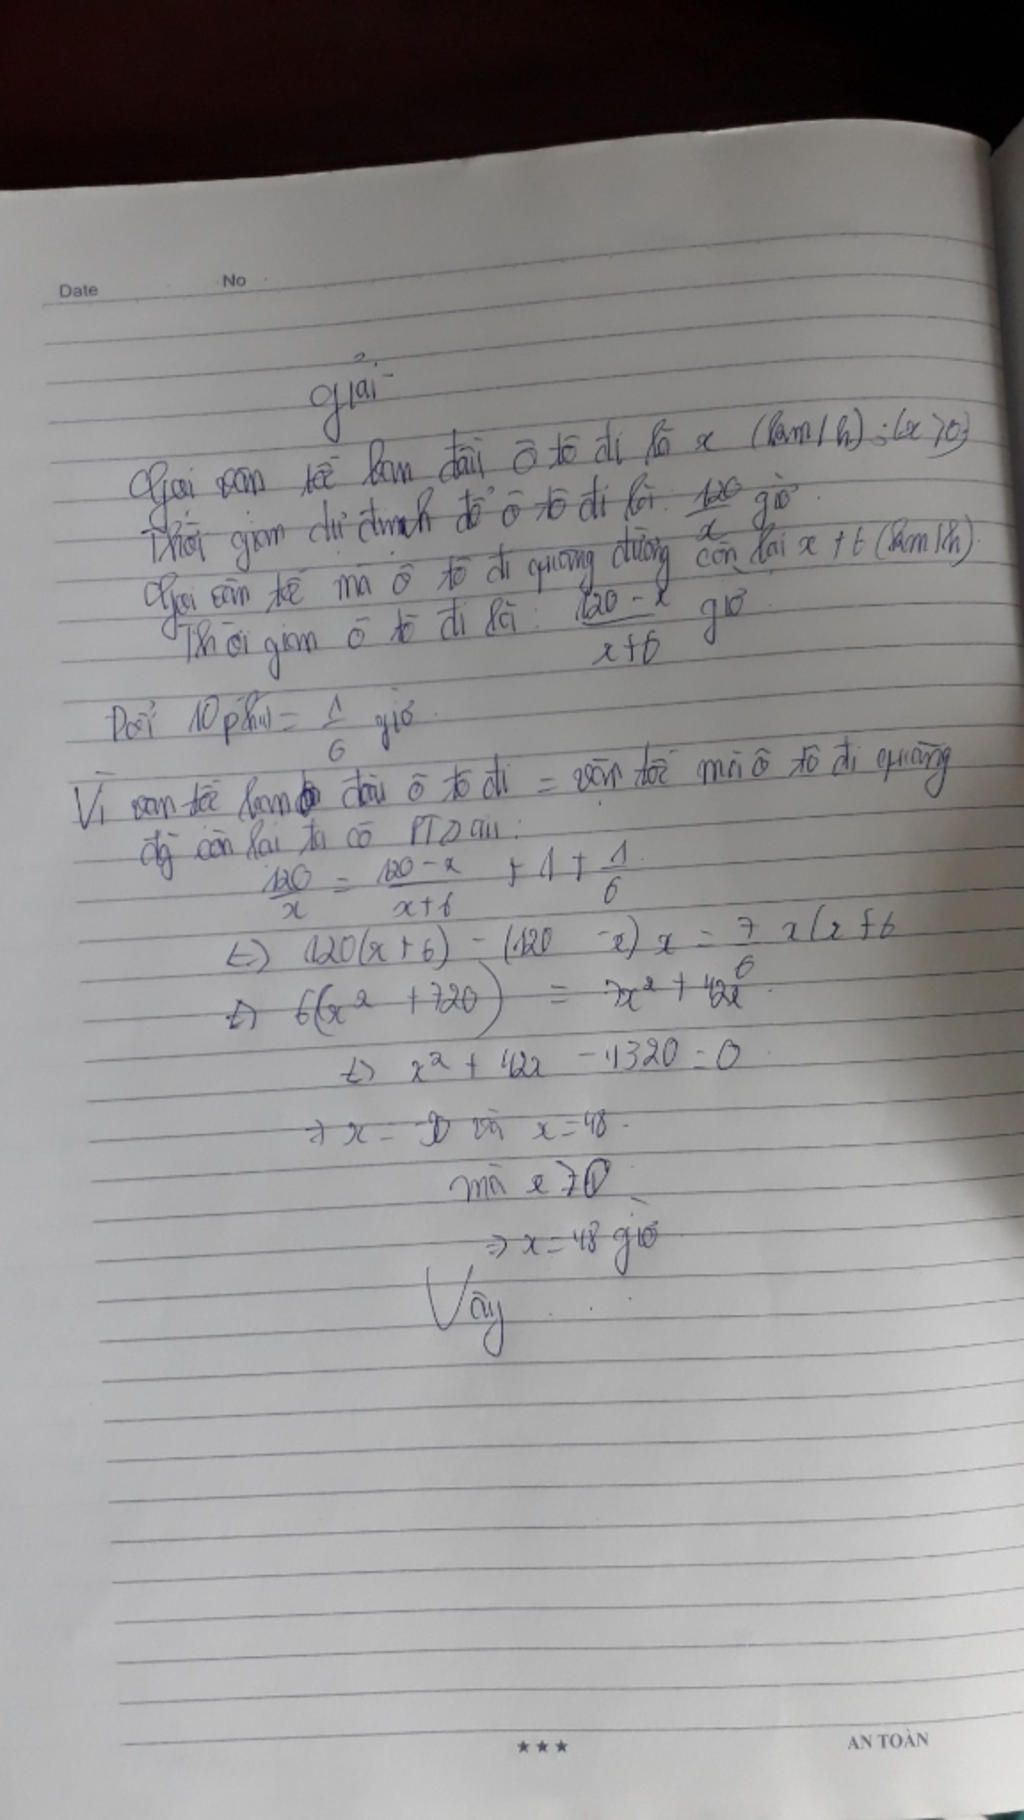 Date No
Giải
Gọi vận tốc ban đầu ô tô đi là x (km/h) ; (x>0)
Thời gian dự định để ô tô đi là: 120/x giờ.
Gọi vận tốc mà ô tô đi quãng đường còn lại x + 6 (km/h).
Thời gian ô tô đi là: 120-x/x+6 giờ
Đổi 10 phút = 1/6 giờ.
Vì vận tốc ban đầu ô tô đi = vận tốc mà ô tô đi quãng
còn lại ta có PT sau:
120/x = 120-x/x+6 + 1 + 1/6
<=> 120(x+6) - (120 -x) x = 7/6 x(x+6
<=> 6(x² + 720) = 7x² + 42x.
<=> x² + 42x - 4320 = 0
=> x = và x = 48.
mà x > 0
=> x = 48 giờ
Vậy . . .
★★★ AN TOÀN